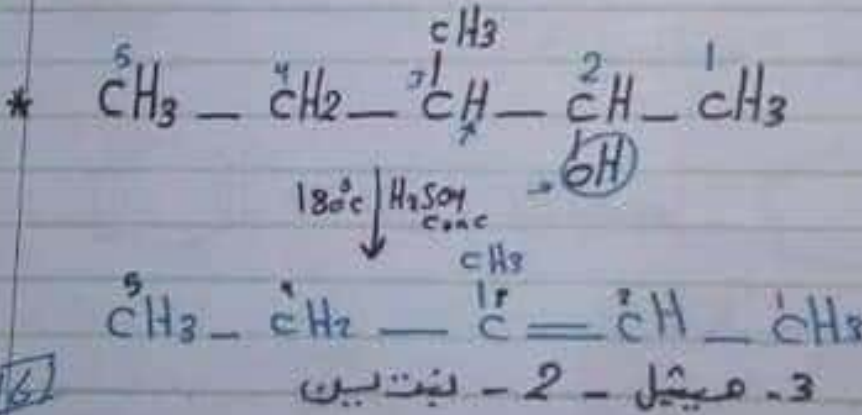 CH3
* 5CH3 — 4CH2 — 3CH — 2CH — 1CH3
OH
180°C H2SO4
conc
CH3
5CH3 — 4CH2 — C = CH — 1CH3
3- ميثيل - 2 - بنتين
6